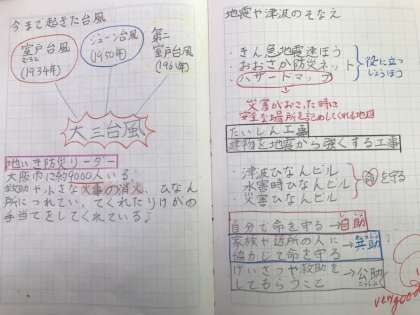 今まで起きた台風
室戸台風
むろと
(1934年)
ジェーン台風
(1950年)
第二
室戸台風
(1961年)
大三台風
地いき防災リーダー
大阪市に約9000人いる。
救助や小さな火事の消火、ひなん
所につれていってくれたりけがの
手当てをしてくれている。
地震や津波のそなえ
・きん急地震速ほう
・おおさか防災ネット
・ハザードマップ
役に立つ
じょうほう
災害がおこった時に
安全な場所を記めしてくれる地図
たいしん工事
建物を地震から強くする工事
・津波ひなんビル
・水害時ひなんビル
・災害ひなんビル
命を守る
自分で命を守る→自助
家族や近所の人に
協力して命を守る→共助
けいさつや救助を
してもらうこと→公助
very good